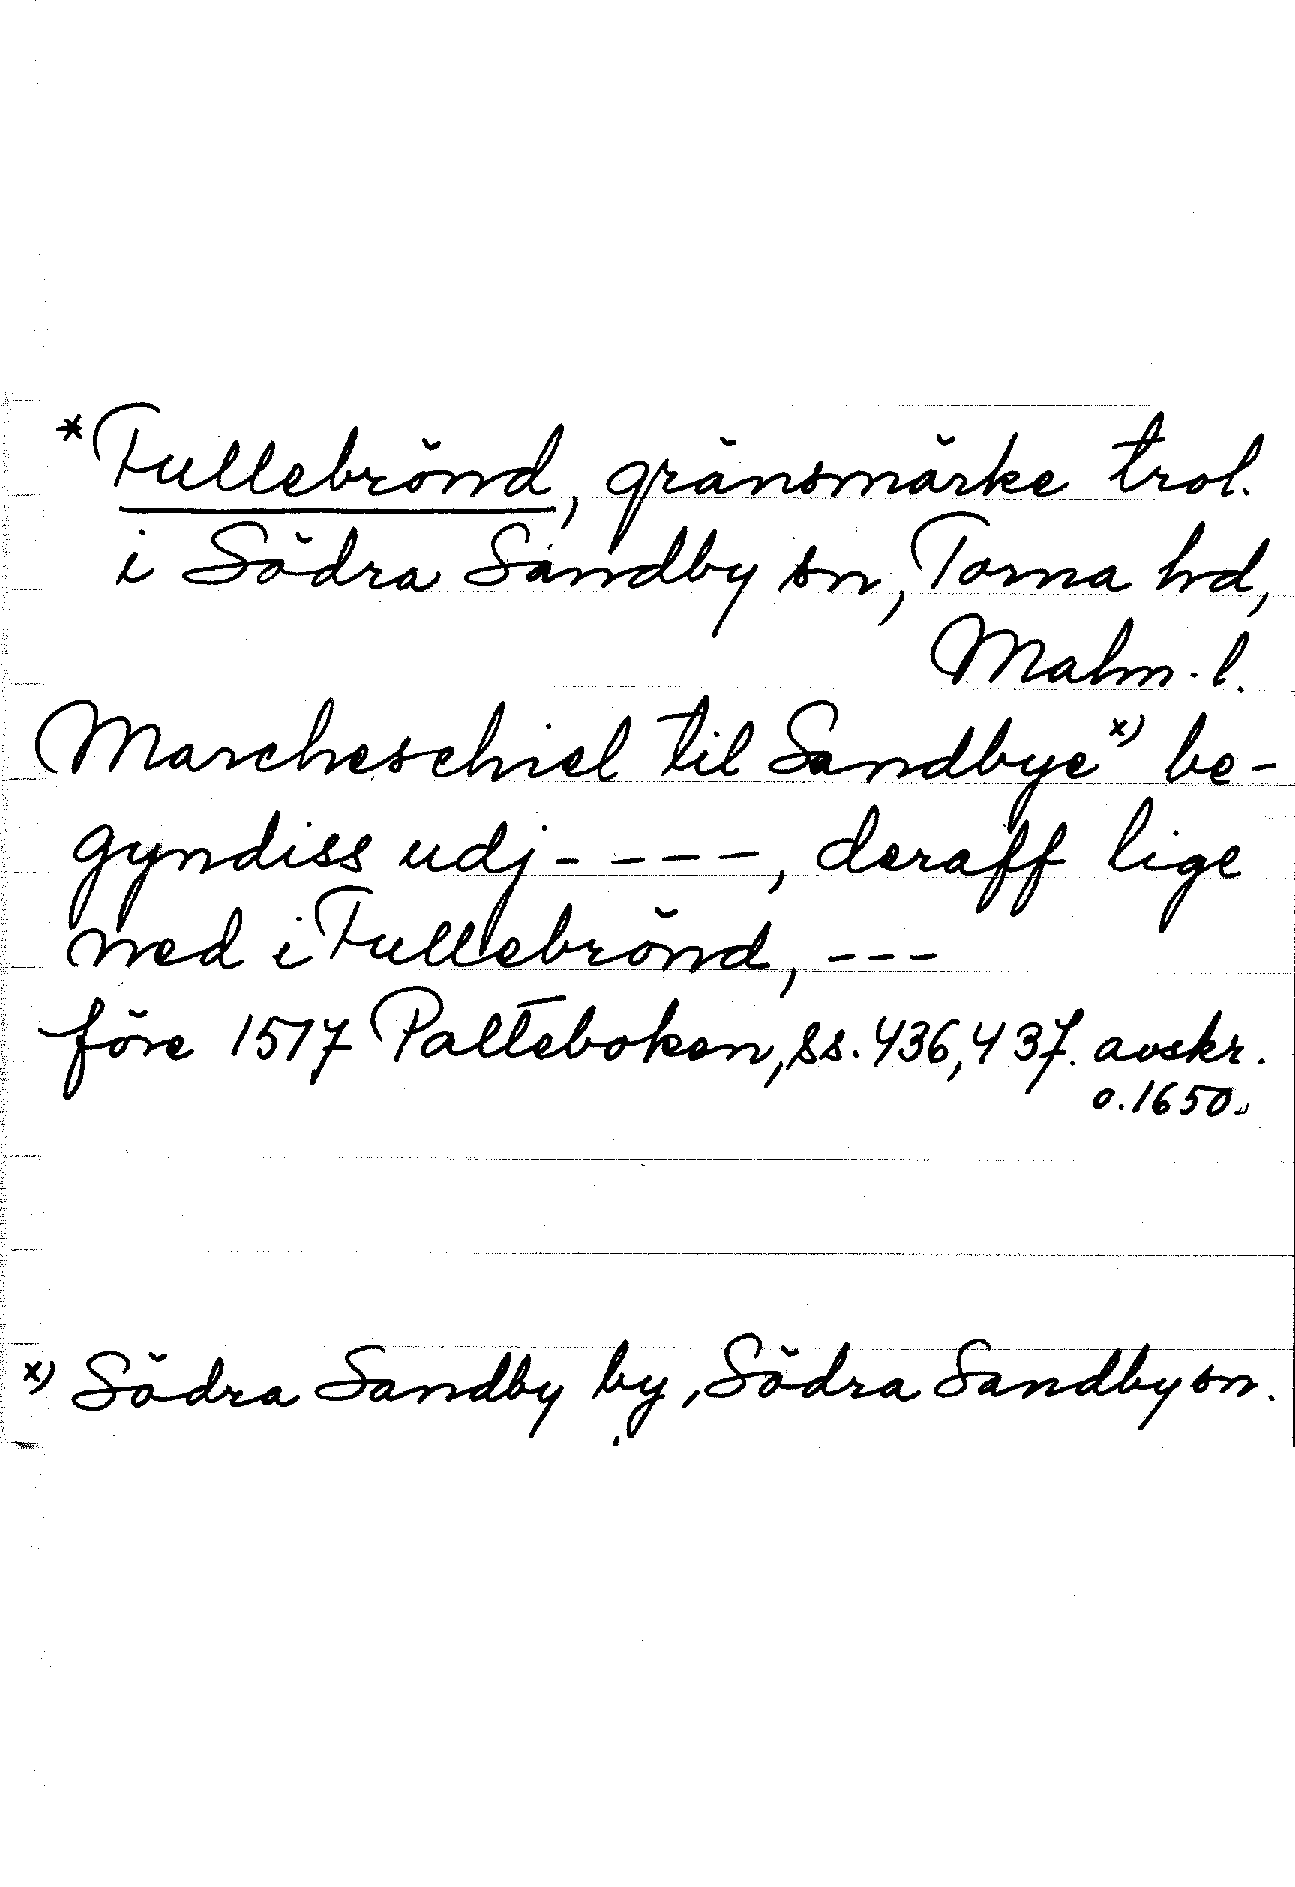 *Fullebrönd, gränsmärke trol.
i Södra Sandby sn, Torna hd,
Malm. l.
Marcheschiel til Sandbye x) be-
gyndiss udj - - - - -, deraff lige
ned i Fullebrönd, - - -
före 1517 Palteboken, ss. 436, 437. avskr.
o. 1650.
x) Södra Sandby by, Södra Sandby sn.